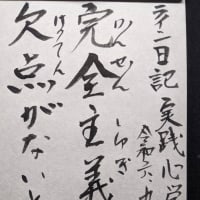 日記 実践心学
令和六、九
かんぜん しゅぎ
完全主義
けってん
欠点がないと